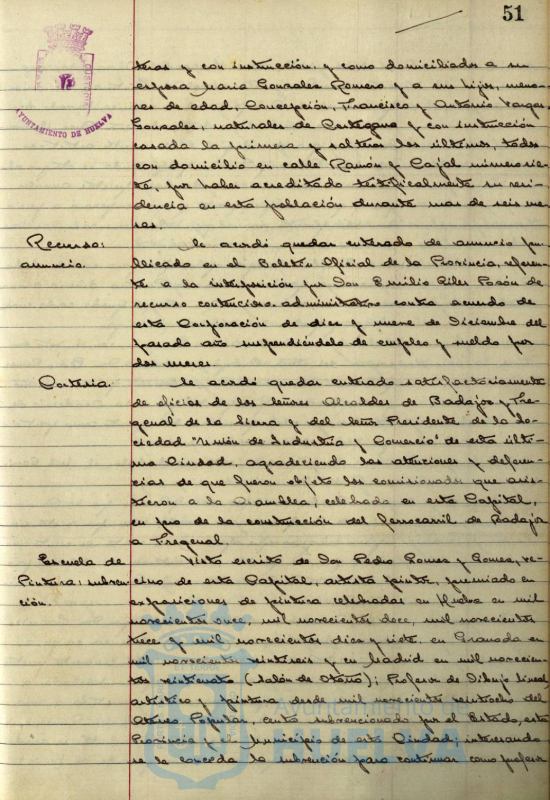 51
AYUNTAMIENTO DE HUELVA
teras y con instrucción, y como domiciliados a su
esposa María Gonzalez Romero y a sus hijos, meno-
res de edad, Concepción, Francisco y Antonio Vargas
Gonzales, naturales de Cortegana y con instrucción
casada la primera y solteros los últimos, todos
con domicilio en calle Ramón y Cajal número sie-
te, por haber acreditado testificalmente su resi-
dencia en esta población durante mas de seis me-
ses.
Recurso:
anuncio.
Se acordó quedar enterado de anuncio pu-
blicado en el Boletín Oficial de la Provincia, referen-
te a la interposición por Don Emilio Giles de
recurso contencioso-administrativo contra acuerdo de
esta Corporación de diez y nueve de Diciembre del
pasado año suspendiéndole de empleo y sueldo por
dos meses.
Cortesía.
Se acordó quedar enterado satisfactoriamente
de oficios de los señores Alcaldes de Badajoz y Fre-
genal de la Sierra y del señor Presidente de la So-
ciedad "Unión de Industria y Comercio" de esta últi-
ma Ciudad, agradeciendo las atenciones y deferen-
cias de que fueron objeto los comisionados que asis-
tieron a la Asamblea, celebrada en esta Capital,
en pro de la construcción del ferrocarril de Badajoz
a Fregenal.
Escuela de
Pintura: subven-
ción.
Visto escrito de Don Pedro Gomez y Gomez, ve-
cino de esta Capital, artista pintor, premiado en
exposiciones de pintura celebradas en Huelva en mil
novecientos once, mil novecientos doce, mil novecientos
trece y mil novecientos diez y siete, en Granada en
mil novecientos veintiseis y en Madrid en mil novecien-
tos veinticuatro (Salón de Otoño); Profesor de Dibujo lineal
artístico y pintura desde mil novecientos veintiocho del
Ateneo Popular, centro subvencionado por el Estado, esta
Provincia y el Municipio de esta Ciudad; interesando
se le conceda la subvención para continuar como profesor
Ayuntamiento de
HUELVA